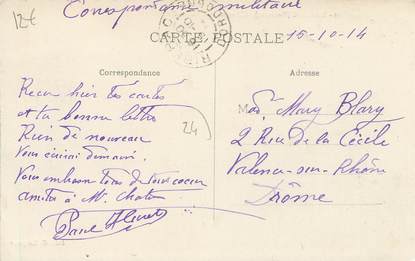 Correspondance militaire
12€
CARTE POSTALE
15-10-14
Correspondance
Adresse
Reçu hier tes cartes
et ta bonne lettre
Rien de nouveau
Vous écrirai demain.
Vous embrasse tous de tout coeur
amitiés à Mr.
Paul
24
Mad. Mary Blary
2 Rue de la Cécile
Valence-sur-Rhône
Drôme